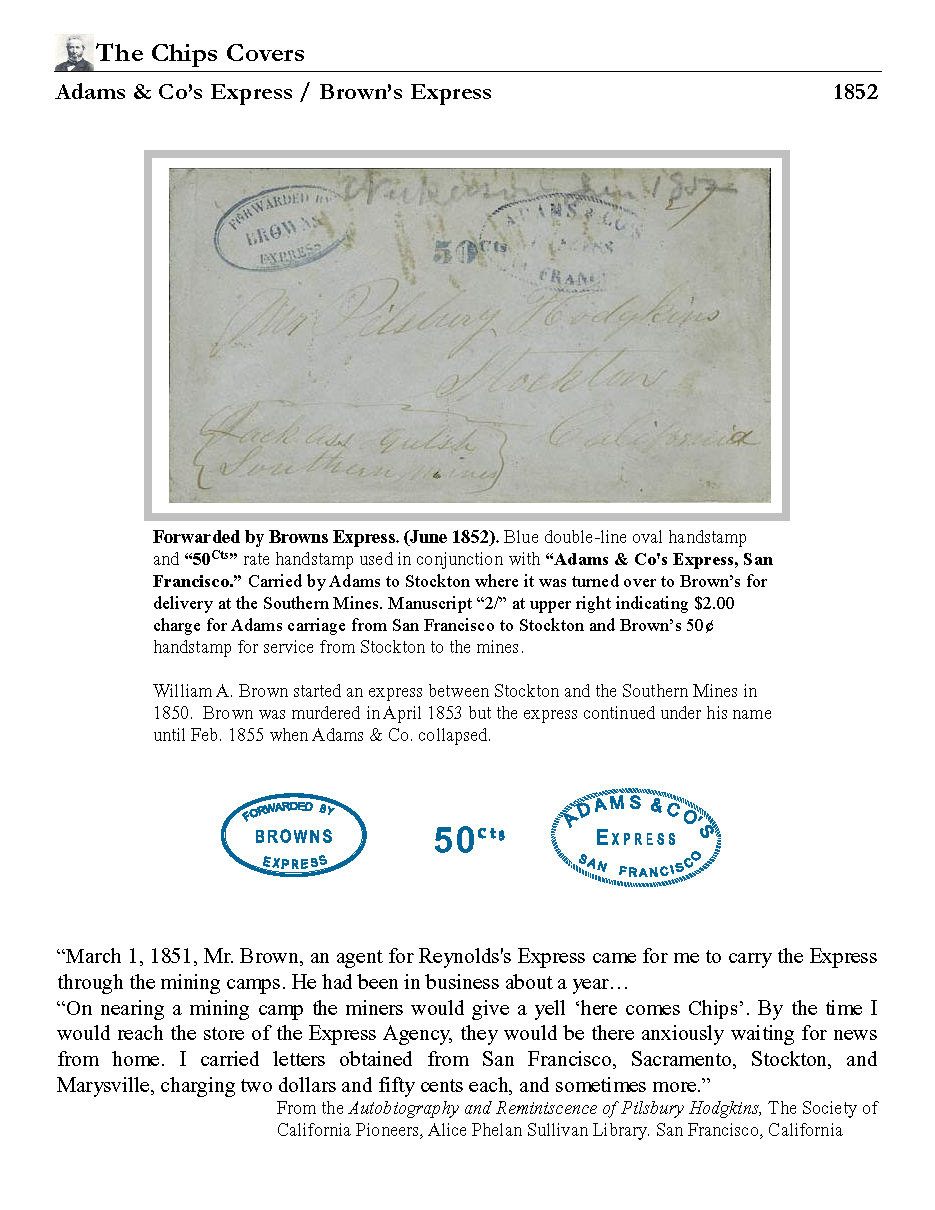 The Chips Covers
Adams & Co's Express / Brown's Express 1852
FORWARDED BY
BROWNS
EXPRESS
50Cts
ADAMS & CO'S
SAN FRANC
Mr Pilsbury Hodgkins
Stockton
California
Jack Ass gulch
Southern mines
Forwarded by Browns Express. (June 1852). Blue double-line oval handstamp
and “50Cts” rate handstamp used in conjunction with “Adams & Co's Express, San
Francisco.” Carried by Adams to Stockton where it was turned over to Brown’s for
delivery at the Southern Mines. Manuscript “2/” at upper right indicating $2.00
charge for Adams carriage from San Francisco to Stockton and Brown’s 50¢
handstamp for service from Stockton to the mines.
William A. Brown started an express between Stockton and the Southern Mines in
1850. Brown was murdered in April 1853 but the express continued under his name
until Feb. 1855 when Adams & Co. collapsed.
FORWARDED BY
BROWNS
EXPRESS
50Cts
ADAMS & CO'S
EXPRESS
SAN FRANCISCO
“March 1, 1851, Mr. Brown, an agent for Reynolds's Express came for me to carry the Express
through the mining camps. He had been in business about a year…
“On nearing a mining camp the miners would give a yell ‘here comes Chips’. By the time I
would reach the store of the Express Agency, they would be there anxiously waiting for news
from home. I carried letters obtained from San Francisco, Sacramento, Stockton, and
Marysville, charging two dollars and fifty cents each, and sometimes more.”
From the Autobiography and Reminiscence of Pilsbury Hodgkins, The Society of
California Pioneers, Alice Phelan Sullivan Library. San Francisco, California